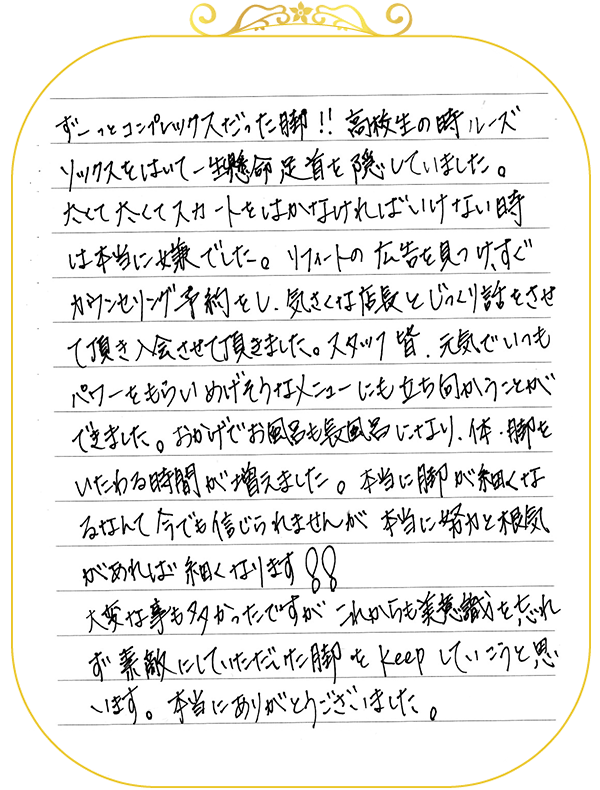 ずーっとコンプレックスだった脚!! 高校生の時ルーズ
ソックスをはいて一生懸命足首を隠していました。
太くて太くてスカートをはかなければいけない時
は本当に嫌でした。リフィートの広告を見つけ、すぐ
カウンセリング予約をし、気さくな店長とじっくり話をさせ
て頂き入会させて頂きました。スタッフ皆、元気でいつも
パワーをもらいめげそうなメニューにも立ち向かうことが
できました。おかげでお風呂も長風呂になり、体・脚を
いたわる時間が増えました。本当に脚が細くな
るなんて今でも信じられませんが 本当に努力と根気
があれば細くなります!!
大変な事も多かったですが これからも美意識を忘れ
ず素敵にしていただいた脚を Keep していこうと思
います。本当にありがとうございました。